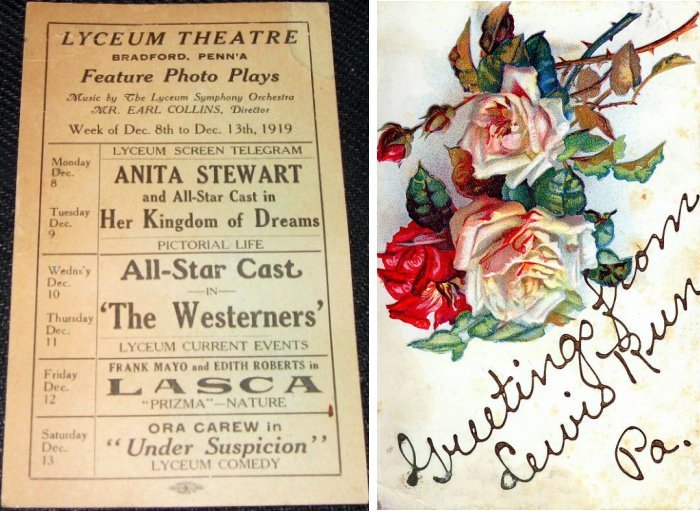 LYCEUM THEATRE
BRADFORD, PENN'A
Feature Photo Plays
Music by The Lyceum Symphony Orchestra
MR. EARL COLLINS, Director
Week of Dec. 8th to Dec. 13th, 1919
LYCEUM SCREEN TELEGRAM
Monday
Dec.
8
ANITA STEWART
and All-Star Cast in
Tuesday
Dec.
9
Her Kingdom of Dreams
PICTORIAL LIFE
Wedns'y
Dec.
10
All-Star Cast
—IN—
Thursday
Dec.
11
'The Westerners'
LYCEUM CURRENT EVENTS
Friday
Dec.
12
FRANK MAYO and EDITH ROBERTS in
LASCA
"PRIZMA"—NATURE
Saturday
Dec.
13
ORA CAREW in
"Under Suspicion"
LYCEUM COMEDY
Greetings from
Lewis Run
Pa.